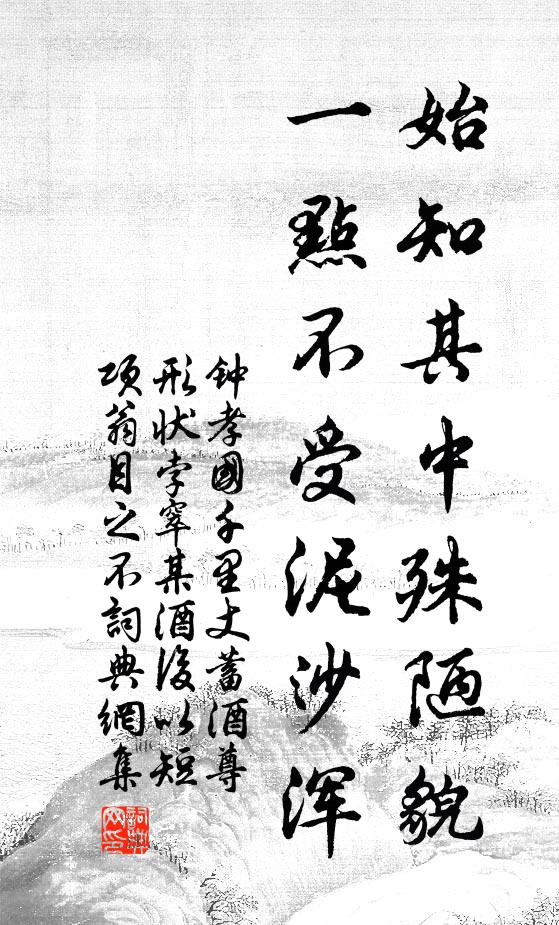 始知其中殊陋貌
一點不受泥沙渾
鈡孝國千里丈蓄酒尊
形状李窂某酒後以短
項翁目之不詞典網集